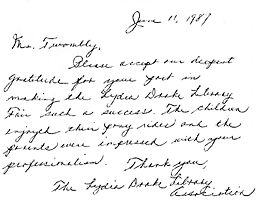 June 11, 1987
Mr. Twombly,
Please accept our deepest
gratitude for your part in
making the Lydia Drake Library
Fair such a success. The children
enjoyed their pony rides and the
parents were impressed with your
professionalism. Thank you,
The Lydia Drake Library
Association